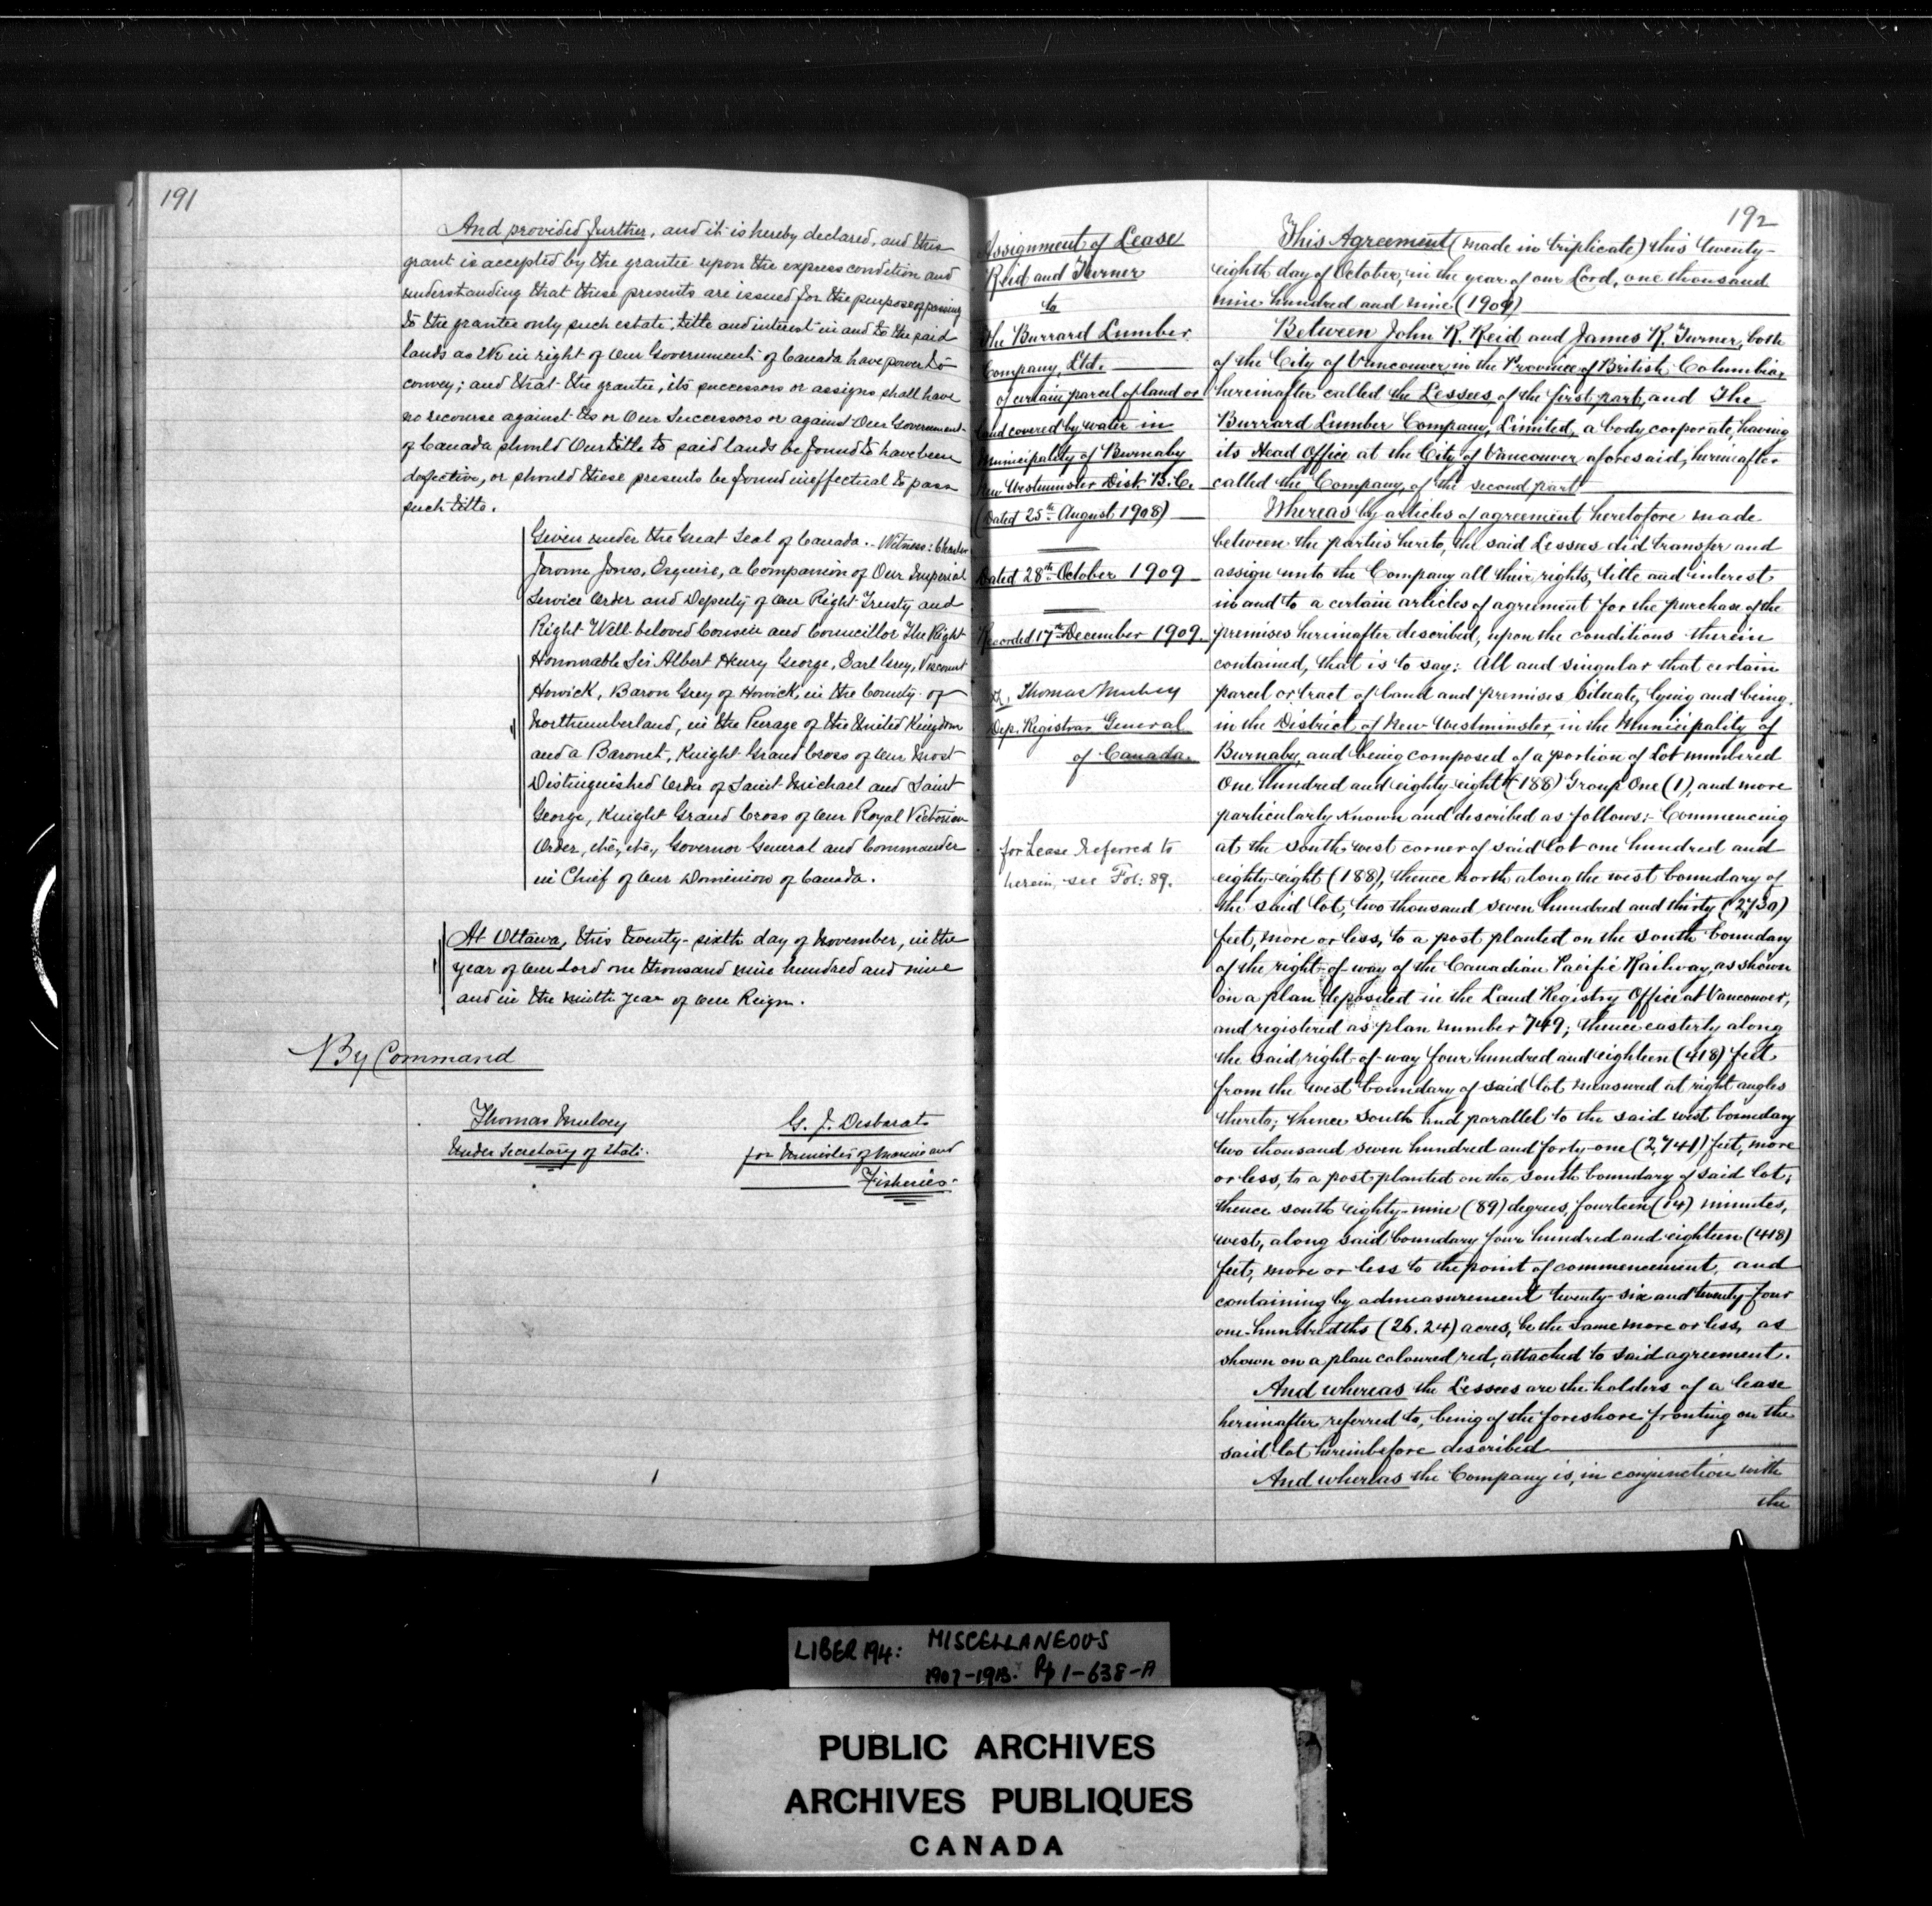 191
And provided further, and it is hereby declared, and this
grant is accepted by the grantee upon the express condition and
understanding that these presents are issued for the purpose of passing
to the grantee only such estate, title and interest in and to the said
lands as We in right of Our Government of Canada have power to
convey; and that the grantee, its successors or assigns shall have
no recourse against Us or Our Successors or against Our Government
of Canada should Our title to said lands be found to have been
defective, or should these presents be found ineffectual to pass
such title.
Given under the Great Seal of Canada. Witness: Charles
Jerome Jones, Esquire, a Companion of Our Imperial
Service Order and Deputy of Our Right Trusty and
Right Well-beloved Cousin and Councillor The Right
Honourable Sir Albert Henry George, Earl Grey, Viscount
Howick, Baron Grey of Howick, in the County of
Northumberland, in the Peerage of the United Kingdom
and a Baronet, Knight Grand Cross of Our Most
Distinguished Order of Saint Michael and Saint
George, Knight Grand Cross of Our Royal Victorian
Order, etc, etc, Governor General and Commander
in Chief of Our Dominion of Canada.
At Ottawa, this twenty-sixth day of November, in the
year of Our Lord one thousand nine hundred and nine
and in the ninth year of Our Reign.
By Command
Thomas Mulvey
Under Secretary of State.
G. J. Desbarats
for Minister of Marine and
Fisheries.
192
Assignment of Lease
Reid and Turner
to
The Burrard Lumber
Company, Ltd.
of certain parcel of land or
land covered by water in
Municipality of Burnaby
New Westminster Dist. B.C.
(Dated 25th August 1908)
Dated 28th October 1909
Recorded 17th December 1909.
Thomas Mulvey
Dep. Registrar General
of Canada.
for Lease referred to
herein, see Fol: 89.
This Agreement (made in triplicate) this twenty-
eighth day of October, in the year of our Lord, one thousand
nine hundred and nine (1909)
Between John R. Reid and James R. Turner, both
of the City of Vancouver, in the Province of British Columbia,
hereinafter called the Lessees, of the first part, and The
Burrard Lumber Company, Limited, a body corporate, having
its Head Office at the City of Vancouver aforesaid, hereinafter
called the Company, of the second part
Whereas by articles of agreement heretofore made
between the parties hereto, the said Lessees did transfer and
assign unto the Company all their rights, title and interest
in and to a certain articles of agreement for the purchase of the
premises hereinafter described, upon the conditions therein
contained, that is to say: All and singular that certain
parcel or tract of land and premises situate, lying and being
in the District of New Westminster, in the Municipality of
Burnaby, and being composed of a portion of Lot numbered
One hundred and eighty-eight (188) Group One (1), and more
particularly known and described as follows:- Commencing
at the south west corner of said lot one hundred and
eighty-eight (188), thence north along the west boundary of
the said lot, two thousand seven hundred and thirty (2,730)
feet, more or less, to a post planted on the south boundary
of the right-of-way of the Canadian Pacific Railway, as shown
on a plan deposited in the Land Registry Office at Vancouver,
and registered as plan number 749; thence easterly along
the said right-of-way four hundred and eighteen (418) feet
from the west boundary of said lot measured at right angles
thereto; thence south and parallel to the said west boundary
two thousand seven hundred and forty-one (2,741) feet, more
or less, to a post planted on the south boundary of said lot;
thence south eighty-nine (89) degrees, fourteen (14) minutes,
west, along said boundary four hundred and eighteen (418)
feet, more or less to the point of commencement, and
containing by admeasurement twenty-six and twenty-four
one-hundredths (26.24) acres, be the same more or less, as
shown on a plan coloured red, attached to said agreement.
And whereas the Lessees are the holders of a lease
hereinafter referred to, being of the foreshore fronting on the
said lot hereinbefore described
And whereas the Company is, in conjunction with
the
LIBER 194: MISCELLANEOUS
1907-1913. Pp 1-638-A
PUBLIC ARCHIVES
ARCHIVES PUBLIQUES
CANADA